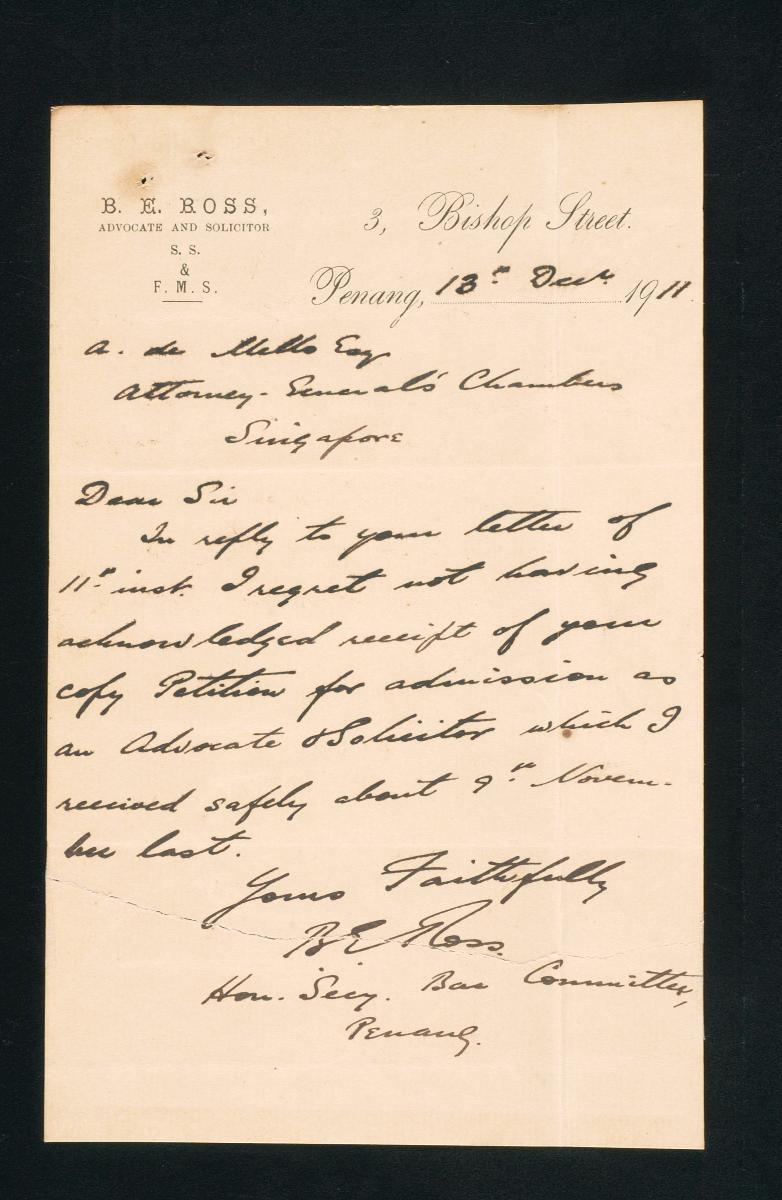 B. E. ROSS,
ADVOCATE AND SOLICITOR
S. S.
&
F. M. S.
3, Bishop Street.
Penang, 13th Decr. 1911.
A. de Mello Esq
Attorney-General's Chambers
Singapore
Dear Sir
In reply to your letter of
11th inst. I regret not having
acknowledged receipt of your
copy Petition for admission as
an Advocate & Solicitor which I
received safely about 9th Novem-
ber last.
Yours Faithfully
B E Ross.
Hon. Secy. Bar Committee,
Penang.